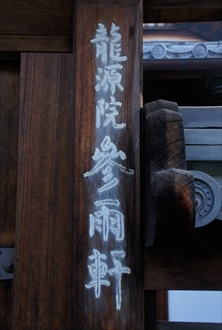 龍源院參雨軒